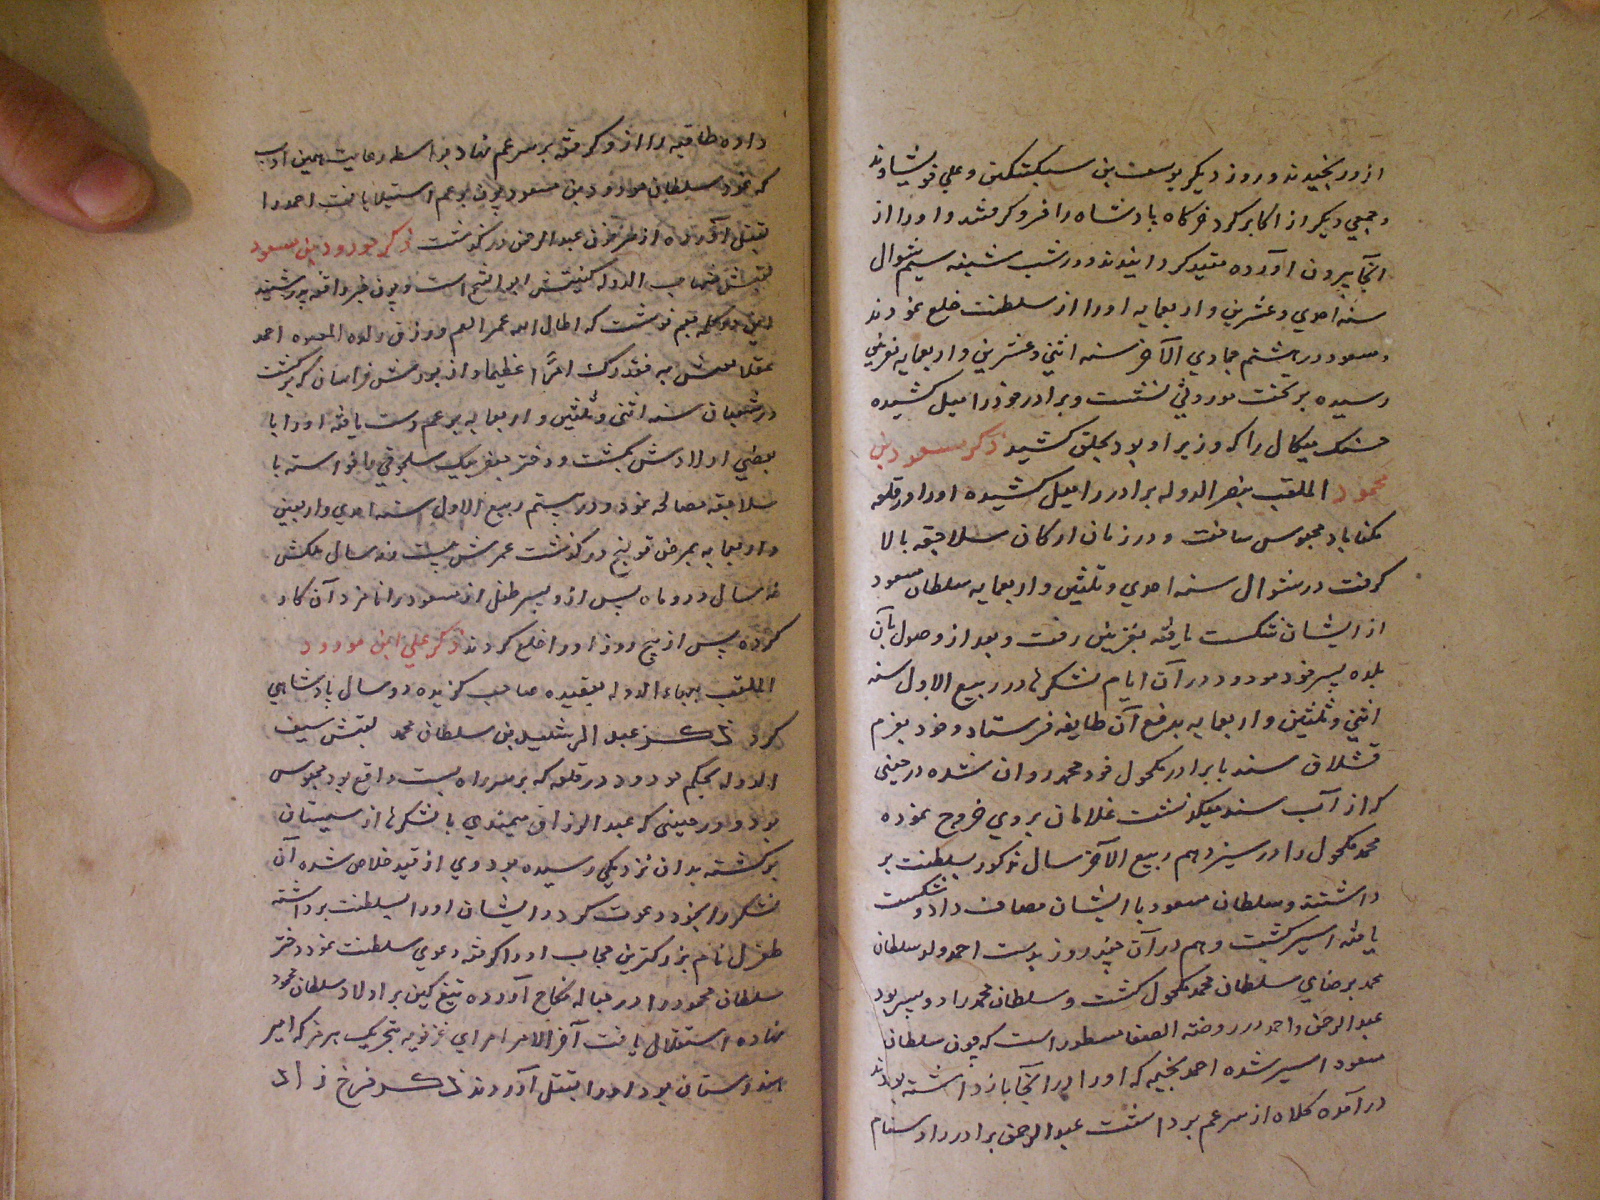 از در بخیدند و روز دیکر یوسف بن سبکتکین و علی خویشاوند
و جمعی دیکر از اکابر کرد خرکاه بادشاه را فرو کرفتند و او را از
انجا بیرون آورده مقید کردانیدند و در شب شنبه سیم شوال
سنه احدی و عشرین و اربعمایه او را از سلطنت خلع نمودند
و مسعود در هشتم جمادی الآخر سنه اثنی و عشرین و اربعمایه بغزنین
رسیده بر تخت موروثی نشست و برادر خود را میل کشیده
حسنک میکال را که وزیر او بود بحلق کشید ذکر مسعود بن
محمود الملقب بنصر الدوله برادر را میل کشیده او را در قلعه
مکناباد محبوس ساخت و در زمان ارکان سلاجقه بالا
کرفت در شوال سنه احدی و ثلثین و اربعمایه سلطان مسعود
از ایشان شکست یافته بغزنین رفت و بعد از وصول بآن
بلده پسر خود مودود در آن ایام لشکرها در ربیع الاول سنه
اثنی و ثلثین و اربعمایه بدفع آن طایفه فرستاد و خود بعزم
قشلاق سند با برادر مکحول خود محمد روان شده در حینی
که از آب سند میکذشت غلامان بر وی خروج نموده
محمد مکحول را در سیزدهم ربیع الآخر سال مذکور بسلطنت بر
داشتند و سلطان مسعود با ایشان مصاف داد و شکست
یافته اسیر کشت و هم در آن چند روز بدست احمد ولد سلطان
محمد برضای سلطان محمد مکحول کشت و سلطان محمد را دو پسر بود
عبد الرحمن و احمد در روضة الصفا مسطور است که چون سلطان
مسعود اسیر شده احمد بخیمه که او را در آنجا باز داشته بودند
در آمده کلاه از سر عم برداشت عبد الرحمن برادر را دشنام
داده طاقیه را از و کرفته بر سر عم نهاد بواسطه رعایت همین ادب
که نمود سلطان مودود بن مسعود چون بر عم استیلا یافت احمد را
بقتل آورده از سر خون عبد الرحمن در کذشت ذکر مودود بن مسعود
لقبش شهاب الدوله کنیتش ابو الفتح است و چون خبر واقعه پدر شنید
این دو کلمه بعم نوشت که اطال الله عمر العم و رزق ولده المعتوه احمد
عقلا یعیش به فقد رکب امرا عظیما و از یورش خراسان که برکشت
در شعبان سنه اثنی و ثلثین و اربعمایه بر عم دست یافته او را با
بعضی اولادش بکشت و دختر جغربیک سلجوقی را خواسته با
سلاجقه مصالحه نمود و در بیستم ربیع الاول سنه احدی و اربعین
و اربعمایه بمرض قولنج در کذشت عمرش بیست و نه سال ملکش
نه سال و دو ماه پس از و پسر طفل از مسعود را نامزد آن کار
کرده پس از پنج روز او را خلع کردند ذکر علی ابن مودود
الملقب ببهاء الدوله بعقیده صاحب کزیده دو سال بادشاهی
کرد ذکر عبد الرشید بن سلطان محمد لقبش سیف
الدوله بحکم مودود در قلعه که بر سر راه بست واقع بود محبوس
بود و در حینی که عبد الرزاق میمندی با لشکرها از سیستان
برکشته بدان نزدیکی رسیده بود وی از قید خلاص شده آن
لشکر را بخود دعوت کرد و ایشان او را بسلطنت برداشته
طغرل نام بزرکترین حجاب او را کرفته دعوی سلطنت نمود دختر
سلطان محمود را در حباله نکاح آورده تیغ کین بر اولاد سلطان محمود
نهاده استقلال یافت آخر الامر امرای غزنویه بتحریک هرمز که امیر
هندوستان بود او را بقتل آوردند ذکر فرخ زاد